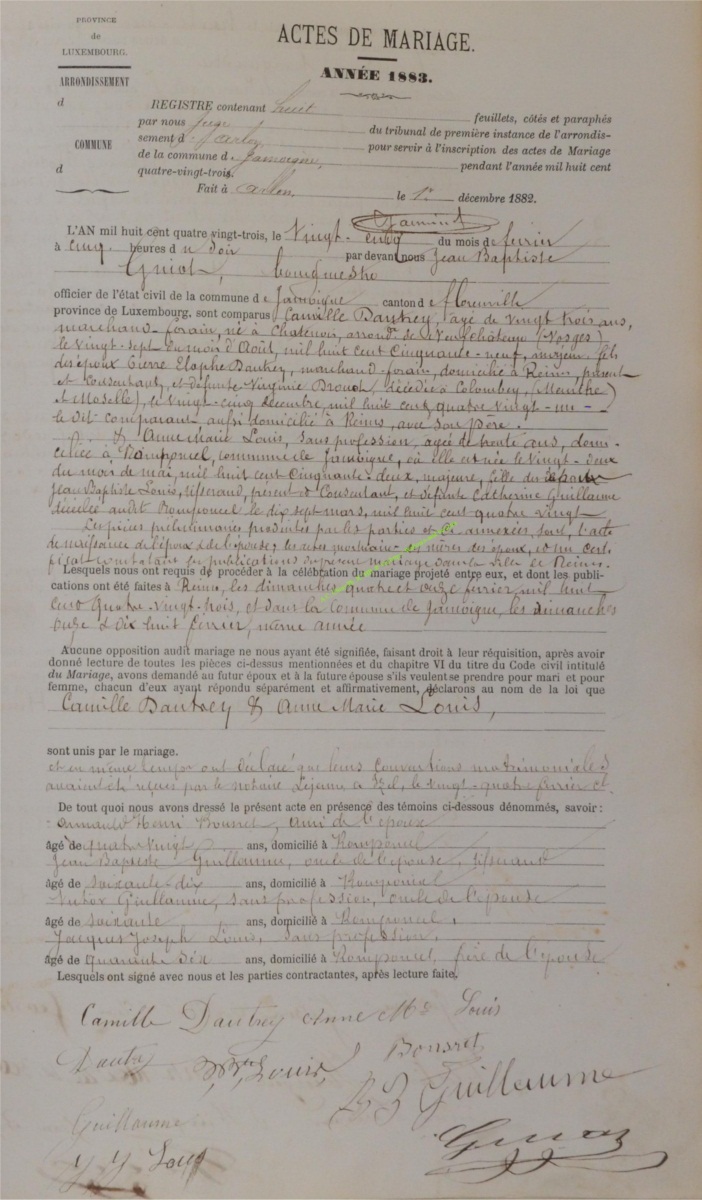 PROVINCE
de
LUXEMBOURG.
ARRONDISSEMENT
d
COMMUNE
d
ACTES DE MARIAGE.
ANNÉE 1883.
REGISTRE contenant huit feuillets, côtés et paraphés
par nous Juge du tribunal de première instance de l'arrondis-
sement d'Arlon pour servir à l'inscription des actes de Mariage
de la commune de Jamoigne, pendant l'année mil huit cent
quatre-vingt-trois.
Fait à Arlon, le 1er décembre 1882.
L'AN mil huit cent quatre vingt-trois, le Vingt-cinq du mois de février
à cinq heures du soir par devant nous Jean Baptiste
Guiot, bourgmestre
officier de l'état civil de la commune de Jamoigne canton de Florenville
province de Luxembourg, sont comparus Camille Dautrey, agé de vingt trois ans,
marchand-forain, né à Chatenois, arrondt de Neufchâteau (Vosges)
le vingt-sept du mois d'Août, mil huit cent cinquante-neuf, majeur fils
des époux Pierre Elophe Dautrey, marchand-forain, domicilié à Reims, présent
et consentant, et défunte Virginie Drouot, décédée à Colombey, (Meurthe
et Moselle), le vingt-cinq décembre, mil huit cent quatre vingt-un -
le dit comparant aussi domicilié à Reims, avec son père.
& Anne Marie Louis, sans profession, agée de trente ans, domi-
ciliée à Romponcel, commune de Jamoigne, où elle est née le vingt-deux
du mois de mai, mil huit cent cinquante-deux, majeure, fille des époux
Jean Baptiste Louis, tisserand, présent et consentant, et défunte Catherine Guillaume
décédée audit Romponcel le dix sept mars, mil huit cent quatre vingt
Les pièces préliminaires produites par les parties et ci annexées, sont, l'acte
de naissance de l'époux & de l'épouse; les actes mortuaires des mères des époux, et un cert
ificat constatant les publications du présent mariage dans la ville de Reims.
Lesquels nous ont requis de procéder à la célébration du mariage projeté entre eux, et dont les publi-
cations ont été faites à Reims, les dimanches quatre et onze février mil huit
cent quatre-vingt-trois, et dans la commune de Jamoigne, les dimanches
onze & dix huit février, même année
Aucune opposition audit mariage ne nous ayant été signifiée, faisant droit à leur réquisition, après avoir
donné lecture de toutes les pièces ci-dessus mentionnées et du chapitre VI du titre du Code civil intitulé
du Mariage, avons demandé au futur époux et à la future épouse s'ils veulent se prendre pour mari et pour
femme, chacun d'eux ayant répondu séparément et affirmativement, déclarons au nom de la loi que
Camille Dautrey & Anne Marie Louis,
sont unis par le mariage.
et en même temps ont déclaré que leurs conventions matrimoniales
avaient été reçues par le notaire Lejeune, à Izel, le vingt-quatre février ct
De tout quoi nous avons dressé le présent acte en présence des témoins ci-dessous dénommés, savoir :
Armand Henri Bonsret, ami de l'époux
âgé de quatre vingt ans, domicilié à Romponcel
Jean Baptiste Guillaume, oncle de l'épouse, tisserand
âgé de soixante-dix ans, domicilié à Romponcel
Guillaume, sans profession, oncle de l'épouse
âgé de soixante ans, domicilié à Romponcel,
Jacques Joseph Louis, sans profession,
âgé de quarante six ans, domicilié à Romponcel, frère de l'épouse
Lesquels ont signé avec nous et les parties contractantes, après lecture faite.
Camille Dautrey Anne Mie Louis
Dautrey Louis Bonsret
J B Guillaume
Guillaume
J J Louis Guiot